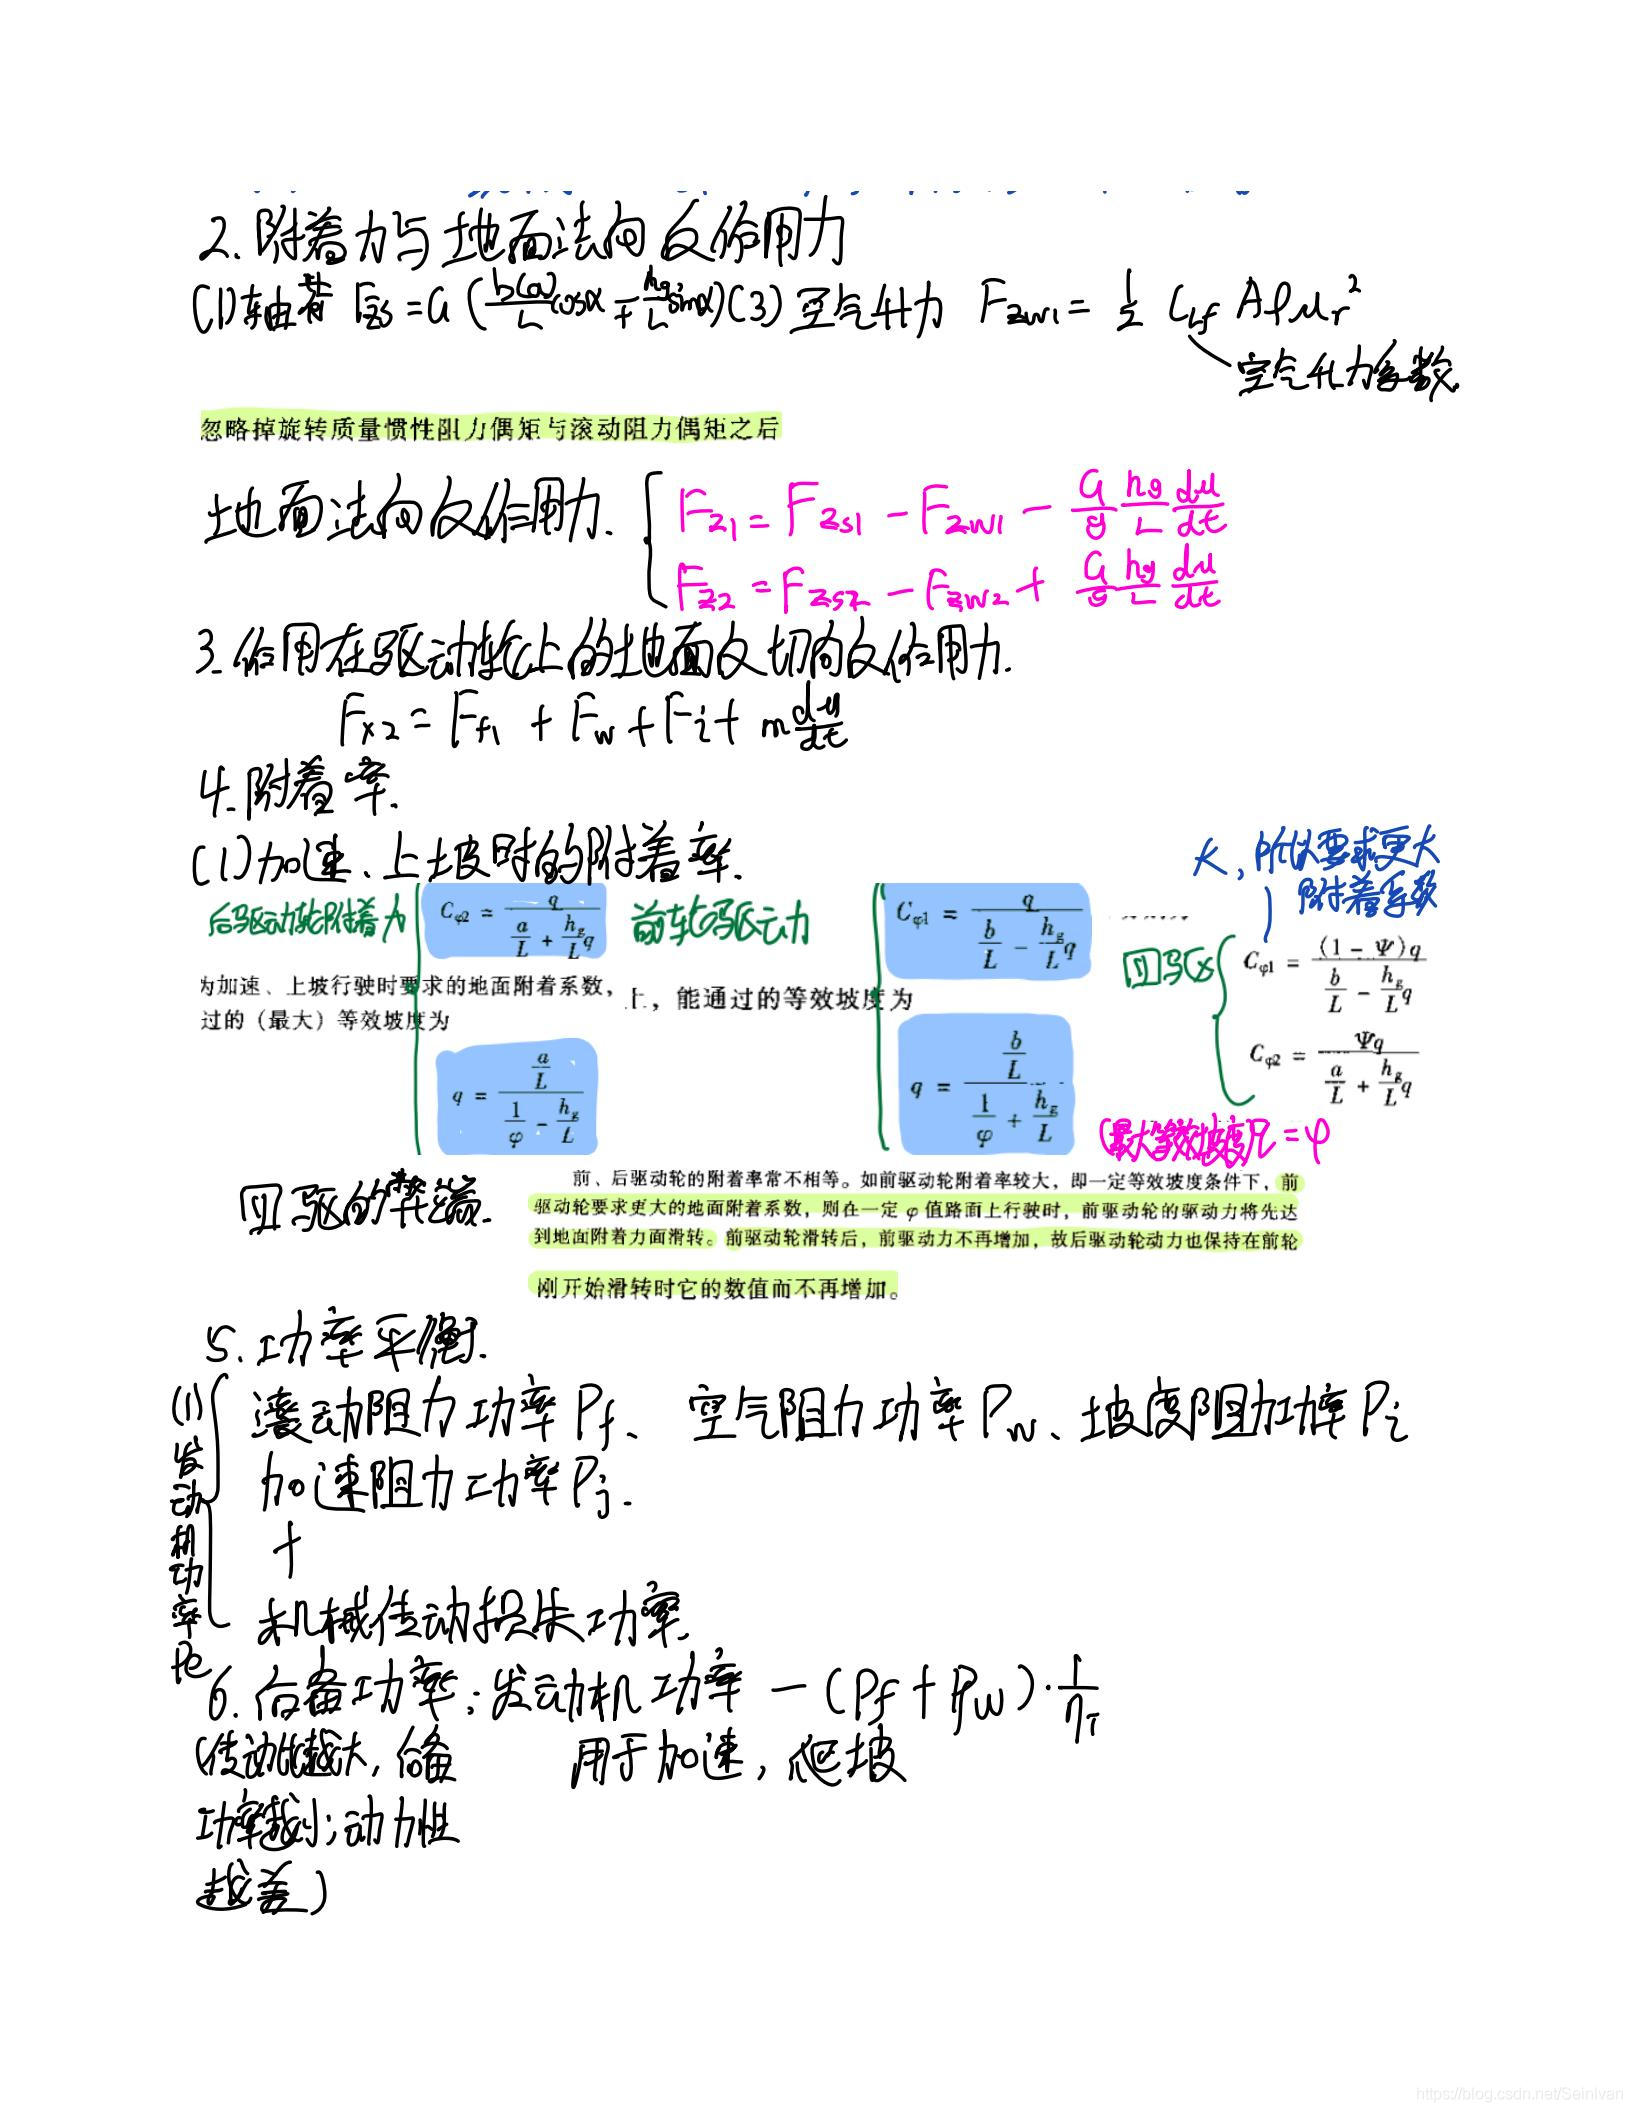 2. 附着力与地面法向反作用力
(1)轴荷 Fzs = G (b(a)/L cosα ∓ hg/L sinα) (3) 空气升力 Fzw1 = 1/2 CLf Aρur²
空气升力系数
忽略掉旋转质量惯性阻力偶矩与滚动阻力偶矩之后
地面法向反作用力. { Fz1 = Fzs1 - Fzw1 - G/g hg/L du/dt
Fz2 = Fzs2 - Fzw2 + G/g hg/L du/dt
3. 作用在驱动轮上的地面反切向反作用力.
Fx2 = Ff1 + Fw + Fi + m du/dt
4. 附着率.
(1) 加速、上坡时的附着率.
大, 所以要求更大
附着系数
后驱动轮附着力 Cφ2 = q / (a/L + hg/L q)
前轮驱动力 Cφ1 = q / (b/L - hg/L q)
四驱 { Cφ1 = (1 - Ψ)q / (b/L - hg/L q)
Cφ2 = Ψq / (a/L + hg/L q)
为加速、上坡行驶时要求的地面附着系数,
过的（最大）等效坡度为
上，能通过的等效坡度为
q = a/L / (1/φ - hg/L)
q = b/L / (1/φ + hg/L)
(最大等效坡度) = φ
四驱的弊端.
前、后驱动轮的附着率常不相等。如前驱动轮附着率较大，即一定等效坡度条件下，前
驱动轮要求更大的地面附着系数，则在一定 φ 值路面上行驶时，前驱动轮的驱动力将先达
到地面附着力面滑转。前驱动轮滑转后，前驱动力不再增加，故后驱动轮动力也保持在前轮
刚开始滑转时它的数值而不再增加。
5. 功率平衡.
(1) 发动机功率Pe
滚动阻力功率Pf、 空气阻力功率Pw、坡度阻力功率Pi
加速阻力功率Pj.
+
机械传动损失功率.
6. 后备功率: 发动机功率 - (Pf + Pw)·1/ηT
(传动比越大, 后备
用于加速, 爬坡
功率越小; 动力性
越差)
https://blog.csdn.net/SeinIvan